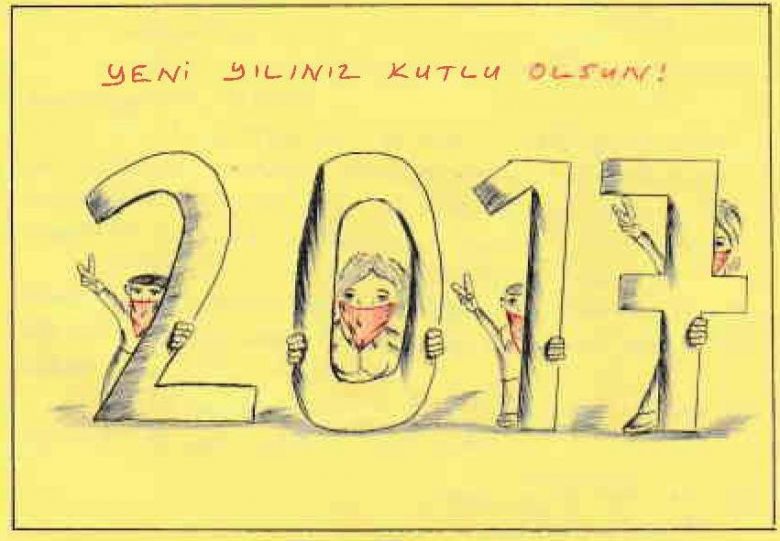 YENİ YILINIZ KUTLU OLSUN!
2017